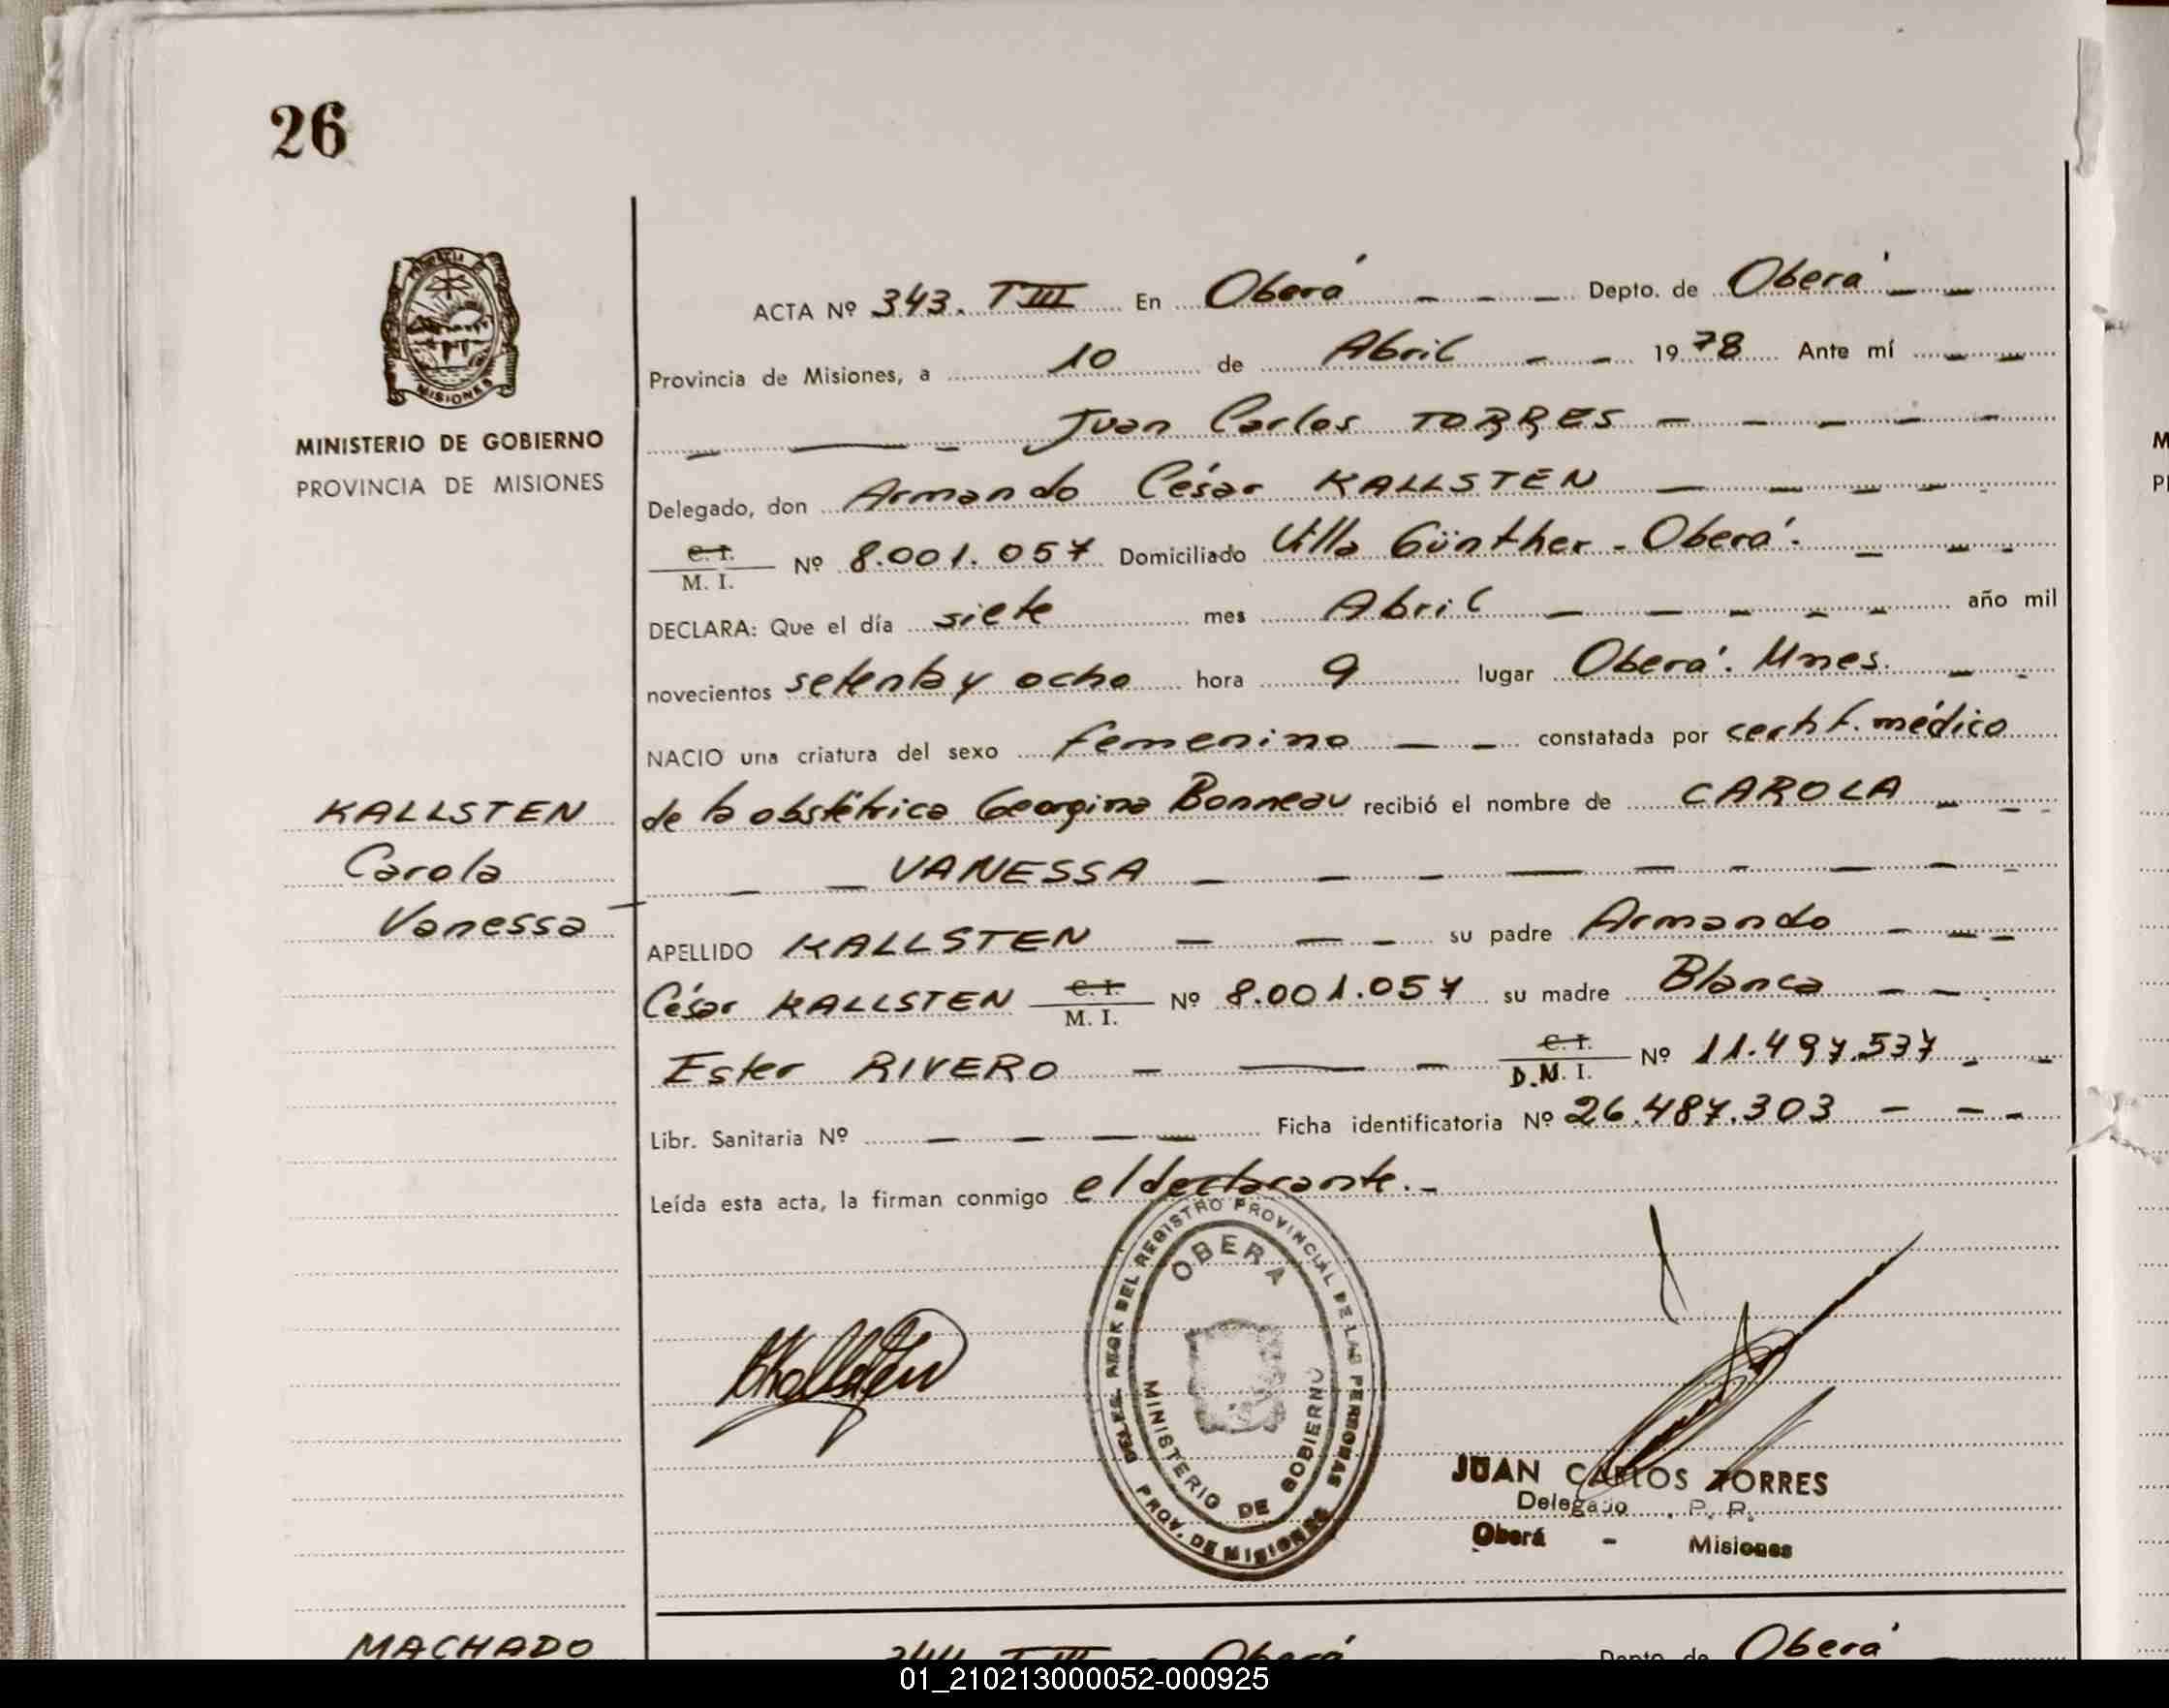 26
PROVINCIA
MISIONES
MINISTERIO DE GOBIERNO
PROVINCIA DE MISIONES
ACTA Nº 343. T III En Oberá Depto. de Oberá
Provincia de Misiones, a 10 de Abril 1978 Ante mí
Juan Carlos TORRES
Delegado, don Armando César KALLSTEN
C. I.
M. I. Nº 8.001.057 Domiciliado Villa Günther - Oberá.
DECLARA: Que el día siete mes Abril año mil
novecientos setenta y ocho hora 9 lugar Oberá. Mnes.
NACIO una criatura del sexo femenino constatada por certif. médico
de la obstétrica Georgina Bonneau recibió el nombre de CAROLA
VANESSA
KALLSTEN
Carola
Vanessa
APELLIDO KALLSTEN su padre Armando
César KALLSTEN C. I. M. I. Nº 8.001.057 su madre Blanca
Ester RIVERO C. I. D.M. I. Nº 11.497.537
Libr. Sanitaria Nº Ficha identificatoria Nº 26.487.303
Leída esta acta, la firman conmigo el declarante.-
REGISTRO PROVINCIAL DE LAS PERSONAS
PROV. DE MISIONES
OBERA
MINISTERIO DE GOBIERNO
JUAN CARLOS TORRES
Delegado P. P.
Oberá - Misiones
MACHADO
344 T III Oberá Depto de Oberá
01_210213000052-000925